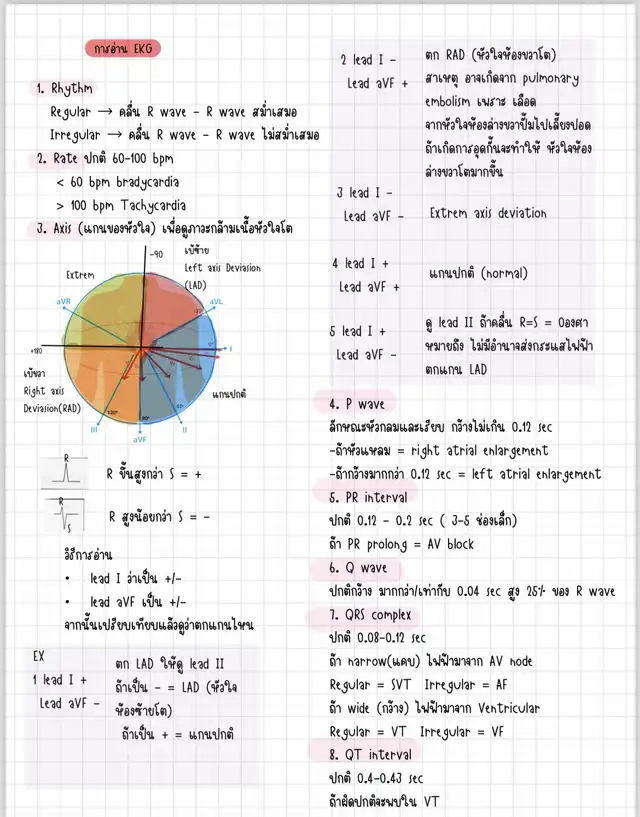 การอ่าน EKG
1. Rhythm
Regular → คลื่น R wave - R wave สม่ำเสมอ
Irregular → คลื่น R wave - R wave ไม่สม่ำเสมอ
2. Rate ปกติ 60-100 bpm
< 60 bpm bradycardia
> 100 bpm Tachycardia
3. Axis (แกนของหัวใจ) เพื่อดูภาวะกล้ามเนื้อหัวใจโต
-90
เบ้ซ้าย
Left axis Deviasion
(LAD)
Extrem
aVR
aVL
-30°
0°
I
+180
เบ้ขวา
Right axis
Deviasion(RAD)
แกนปกติ
120°
90°
60°
III
aVF
II
R
R ขึ้นสูงกว่า S = +
R
S
R สูงน้อยกว่า S = -
วิธีการอ่าน
• lead I ว่าเป็น +/-
• lead aVF เป็น +/-
จากนั้นเปรียบเทียบแล้วดูว่าตกแกนไหน
EX
1 lead I +
Lead aVF -
ตก LAD ให้ดู lead II
ถ้าเป็น - = LAD (หัวใจ
ห้องซ้ายโต)
ถ้าเป็น + = แกนปกติ
2 lead I -
Lead aVF +
ตก RAD (หัวใจห้องขวาโต)
สาเหตุ อาจเกิดจาก pulmonary
embolism เพราะ เลือด
จากหัวใจห้องล่างขวาปั๊มไปเลี้ยงปอด
ถ้าเกิดการอุดกั้นจะทำให้ หัวใจห้อง
ล่างขวาโตมากขึ้น
3 lead I -
Lead aVF -
Extrem axis deviation
4 lead I +
Lead aVF +
แกนปกติ (normal)
5 lead I +
Lead aVF -
ดู lead II ถ้าคลื่น R=S = 0องศา
หมายถึง ไม่มีอำนาจส่งกระแสไฟฟ้า
ตกแกน LAD
4. P wave
ลักษณะหัวกลมและเรียบ กว้างไม่เกิน 0.12 sec
-ถ้าหัวแหลม = right atrial enlargement
-ถ้ากว้างมากกว่า 0.12 sec = left atrial enlargement
5. PR interval
ปกติ 0.12 - 0.2 sec ( 3-5 ช่องเล็ก)
ถ้า PR prolong = AV block
6. Q wave
ปกติกว้าง มากกว่า/เท่ากับ 0.04 sec สูง 25% ของ R wave
7. QRS complex
ปกติ 0.08-0.12 sec
ถ้า narrow(แคบ) ไฟฟ้ามาจาก AV node
Regular = SVT Irregular = AF
ถ้า wide (กว้าง) ไฟฟ้ามาจาก Ventricular
Regular = VT Irregular = VF
8. QT interval
ปกติ 0.4-0.43 sec
ถ้าผิดปกติจะพบใน VT